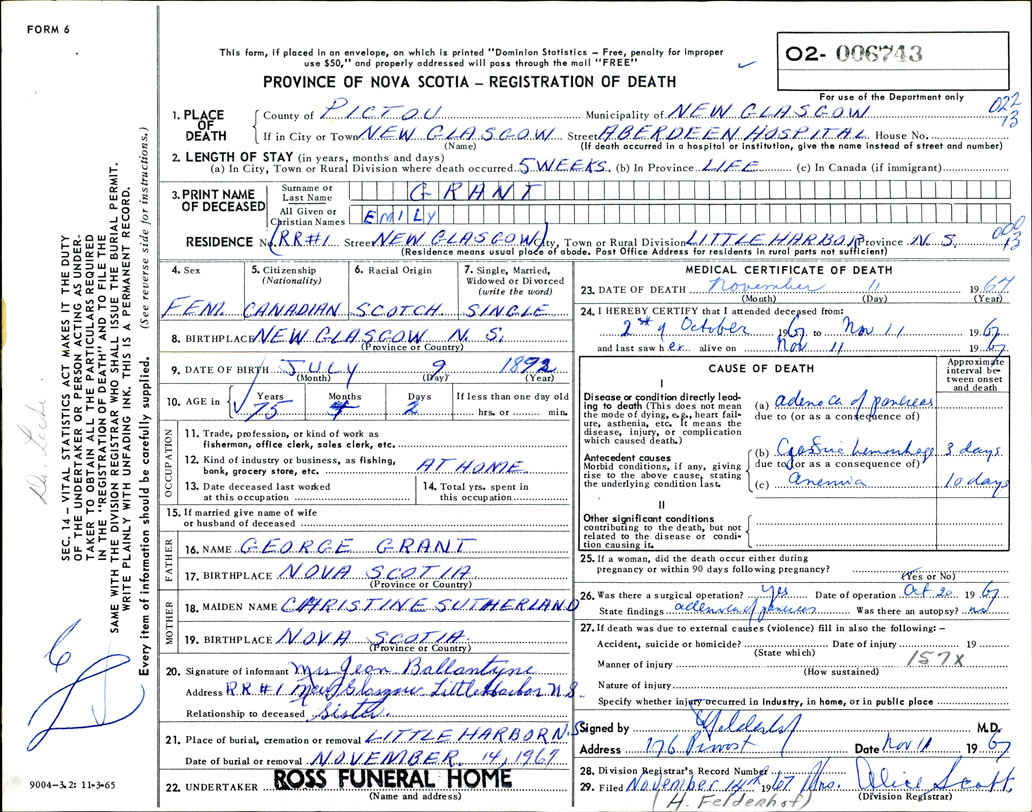 FORM 6
This form, if placed in an envelope, on which is printed "Dominion Statistics – Free, penalty for improper
use $50," and properly addressed will pass through the mail "FREE"
PROVINCE OF NOVA SCOTIA – REGISTRATION OF DEATH
02- 006743
For use of the Department only
022
13
1. PLACE OF DEATH
County of PICTOU Municipality of NEW GLASGOW
If in City or Town NEW GLASGOW Street ABERDEEN HOSPITAL House No.
(Name) (If death occurred in a hospital or institution, give the name instead of street and number)
2. LENGTH OF STAY (in years, months and days)
(a) In City, Town or Rural Division where death occurred 5 WEEKS. (b) In Province LIFE (c) In Canada (if immigrant)
3. PRINT NAME OF DECEASED
Surname or Last Name GRANT
All Given or Christian Names EMILY
RESIDENCE No. RR#1 Street NEW GLASGOW City, Town or Rural Division LITTLE HARBOR Province N.S.
(Residence means usual place of abode. Post Office Address for residents in rural parts not sufficient)
000
13
4. Sex
FEM.
5. Citizenship
(Nationality)
CANADIAN
6. Racial Origin
SCOTCH
7. Single, Married,
Widowed or Divorced
(write the word)
SINGLE
8. BIRTHPLACE NEW GLASGOW N.S.
(Province or Country)
9. DATE OF BIRTH JULY 9 1892
(Month) (Day) (Year)
10. AGE in
Years Months Days If less than one day old
75 4 2 hrs. or min.
OCCUPATION
11. Trade, profession, or kind of work as
fisherman, office clerk, sales clerk, etc.
12. Kind of industry or business, as fishing,
bank, grocery store, etc. AT HOME
13. Date deceased last worked
at this occupation
14. Total yrs. spent in
this occupation
15. If married give name of wife
or husband of deceased
FATHER
16. NAME GEORGE GRANT
17. BIRTHPLACE NOVA SCOTIA
(Province or Country)
MOTHER
18. MAIDEN NAME CHRISTINE SUTHERLAND
19. BIRTHPLACE NOVA SCOTIA
(Province or Country)
20. Signature of informant Mrs Jean Ballantyne
Address RR #1 New Glasgow Little Harbor N.S.
Relationship to deceased Sister.
21. Place of burial, cremation or removal LITTLE HARBOR N.S
Date of burial or removal NOVEMBER 14, 1967
22. UNDERTAKER ROSS FUNERAL HOME
(Name and address)
MEDICAL CERTIFICATE OF DEATH
23. DATE OF DEATH November 11 1967
(Month) (Day) (Year)
24. I HEREBY CERTIFY that I attended deceased from:
2nd of October 1967 to Nov 11 1967
and last saw her alive on Nov 11 1967
CAUSE OF DEATH
Approximate
interval be-
tween onset
and death
I
Disease or condition directly lead-
ing to death (This does not mean
the mode of dying, e.g., heart fail-
ure, asthenia, etc. It means the
disease, injury, or complication
which caused death.)
(a) adeno ca of pancreas
due to (or as a consequence of)
Antecedent causes
Morbid conditions, if any, giving
rise to the above cause, stating
the underlying condition last.
(b) hemorrhage 3 days
due to (or as a consequence of)
(c) anemia 10 days
II
Other significant conditions
contributing to the death, but not
related to the disease or condi-
tion causing it.
25. If a woman, did the death occur either during
pregnancy or within 90 days following pregnancy?
(Yes or No)
26. Was there a surgical operation? Yes Date of operation Oct 20 1967
State findings adeno ca of pancreas Was there an autopsy? no
27. If death was due to external causes (violence) fill in also the following: –
Accident, suicide or homicide? Date of injury 19
(State which)
157X
Manner of injury
(How sustained)
Nature of injury
Specify whether injury occurred in industry, in home, or in public place
Signed by M.D.
Address 176 Provost Date Nov 11 1967
28. Division Registrar's Record Number
29. Filed November 14th 1967 Mrs. Alice Scott
(Division Registrar)
(H. Feldenhof)
SEC. 14 – VITAL STATISTICS ACT MAKES IT THE DUTY
OF THE UNDERTAKER OR PERSON ACTING AS UNDER-
TAKER TO OBTAIN ALL THE PARTICULARS REQUIRED
IN THE "REGISTRATION OF DEATH" AND TO FILE THE
SAME WITH THE DIVISION REGISTRAR WHO SHALL ISSUE THE BURIAL PERMIT.
WRITE PLAINLY WITH UNFADING INK. THIS IS A PERMANENT RECORD.
Every item of information should be carefully supplied. (See reverse side for instructions.)
9004–3.2: 11-3-65